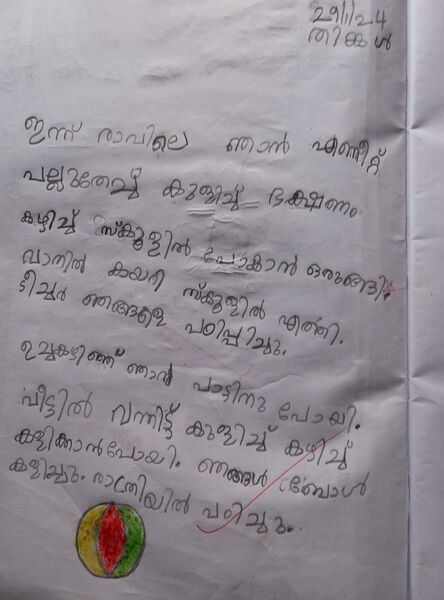 29/1/24
തിങ്കൾ
ഇന്ന് രാവിലെ ഞാൻ എണീറ്റ്
പല്ലുതേച്ച് കുളിച്ച് ഭക്ഷണം
കഴിച്ച് സ്കൂളിൽ പോകാൻ ഒരുങ്ങി.
വാനിൽ കയറി സ്കൂളിൽ എത്തി.
ടീച്ചർ ഞങ്ങളെ പഠിപ്പിച്ചു.
ഉച്ചകഴിഞ്ഞ് ഞാൻ പാട്ടിനു പോയി.
വീട്ടിൽ വന്നിട്ട് കുളിച്ച് കഴിച്ച്
കളിക്കാൻപോയി. ഞങ്ങൾ ബോൾ
കളിച്ചു. രാത്രിയിൽ പഠിച്ചു.